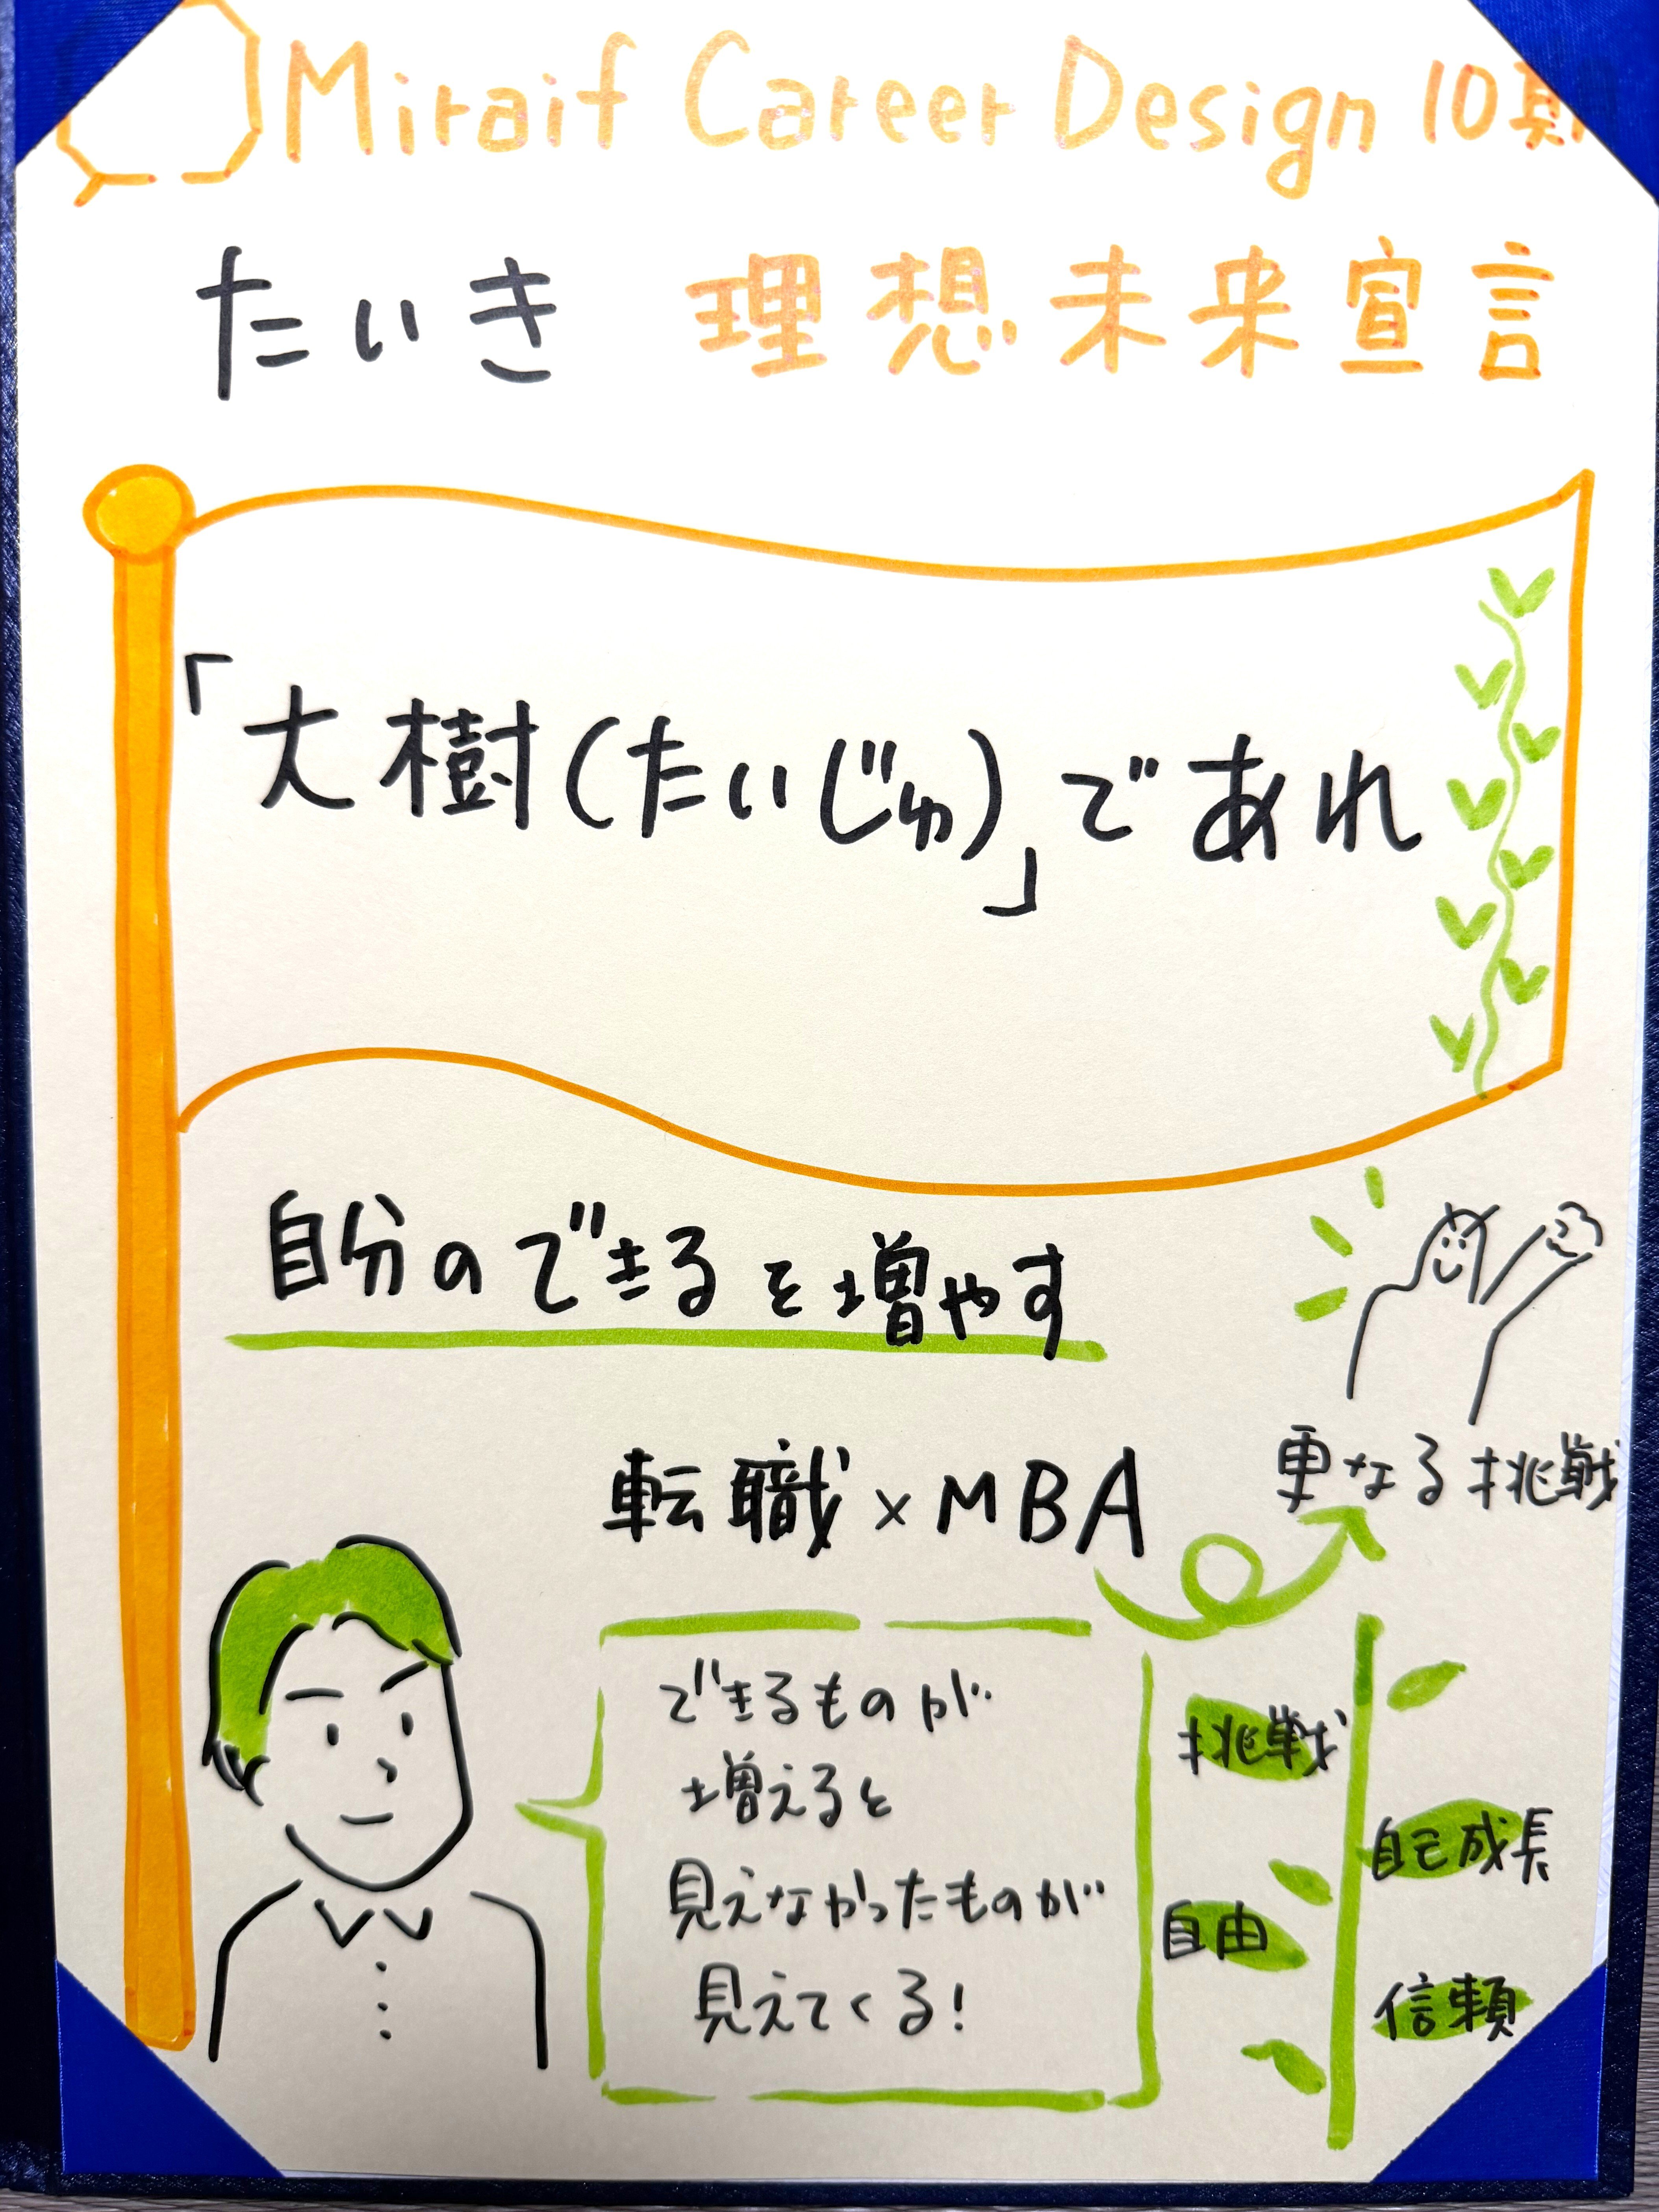 Miraif Career Design 10期
たいき 理想未来宣言
「大樹(たいじゅ)」であれ
自分のできるを増やす
転職×MBA
更なる挑戦
できるものが
増えると
見えなかったものが
見えてくる!
挑戦
自己成長
自由
信頼